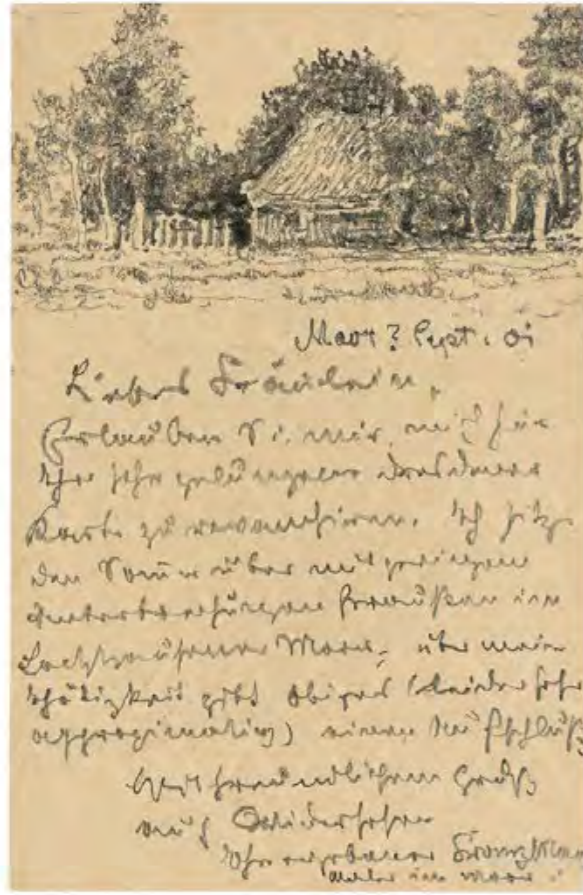 Moor ? Sept. 01
Liebes Fräulein,
Erlauben Sie mir, mich für
Ihre sehr gelungene Dresdener
Karte zu revanchieren. Ich sitze
den Sommer über mit geringen
Unterbrechungen draußen im
Lochhausener Moor, über meine
Thätigkeit gibt obiges (leider sehr
approximativ) einen Aufschluß
Mit freundlichem Gruß
auf Widersehen
Ihr ergebener Franz
Maler im Moor